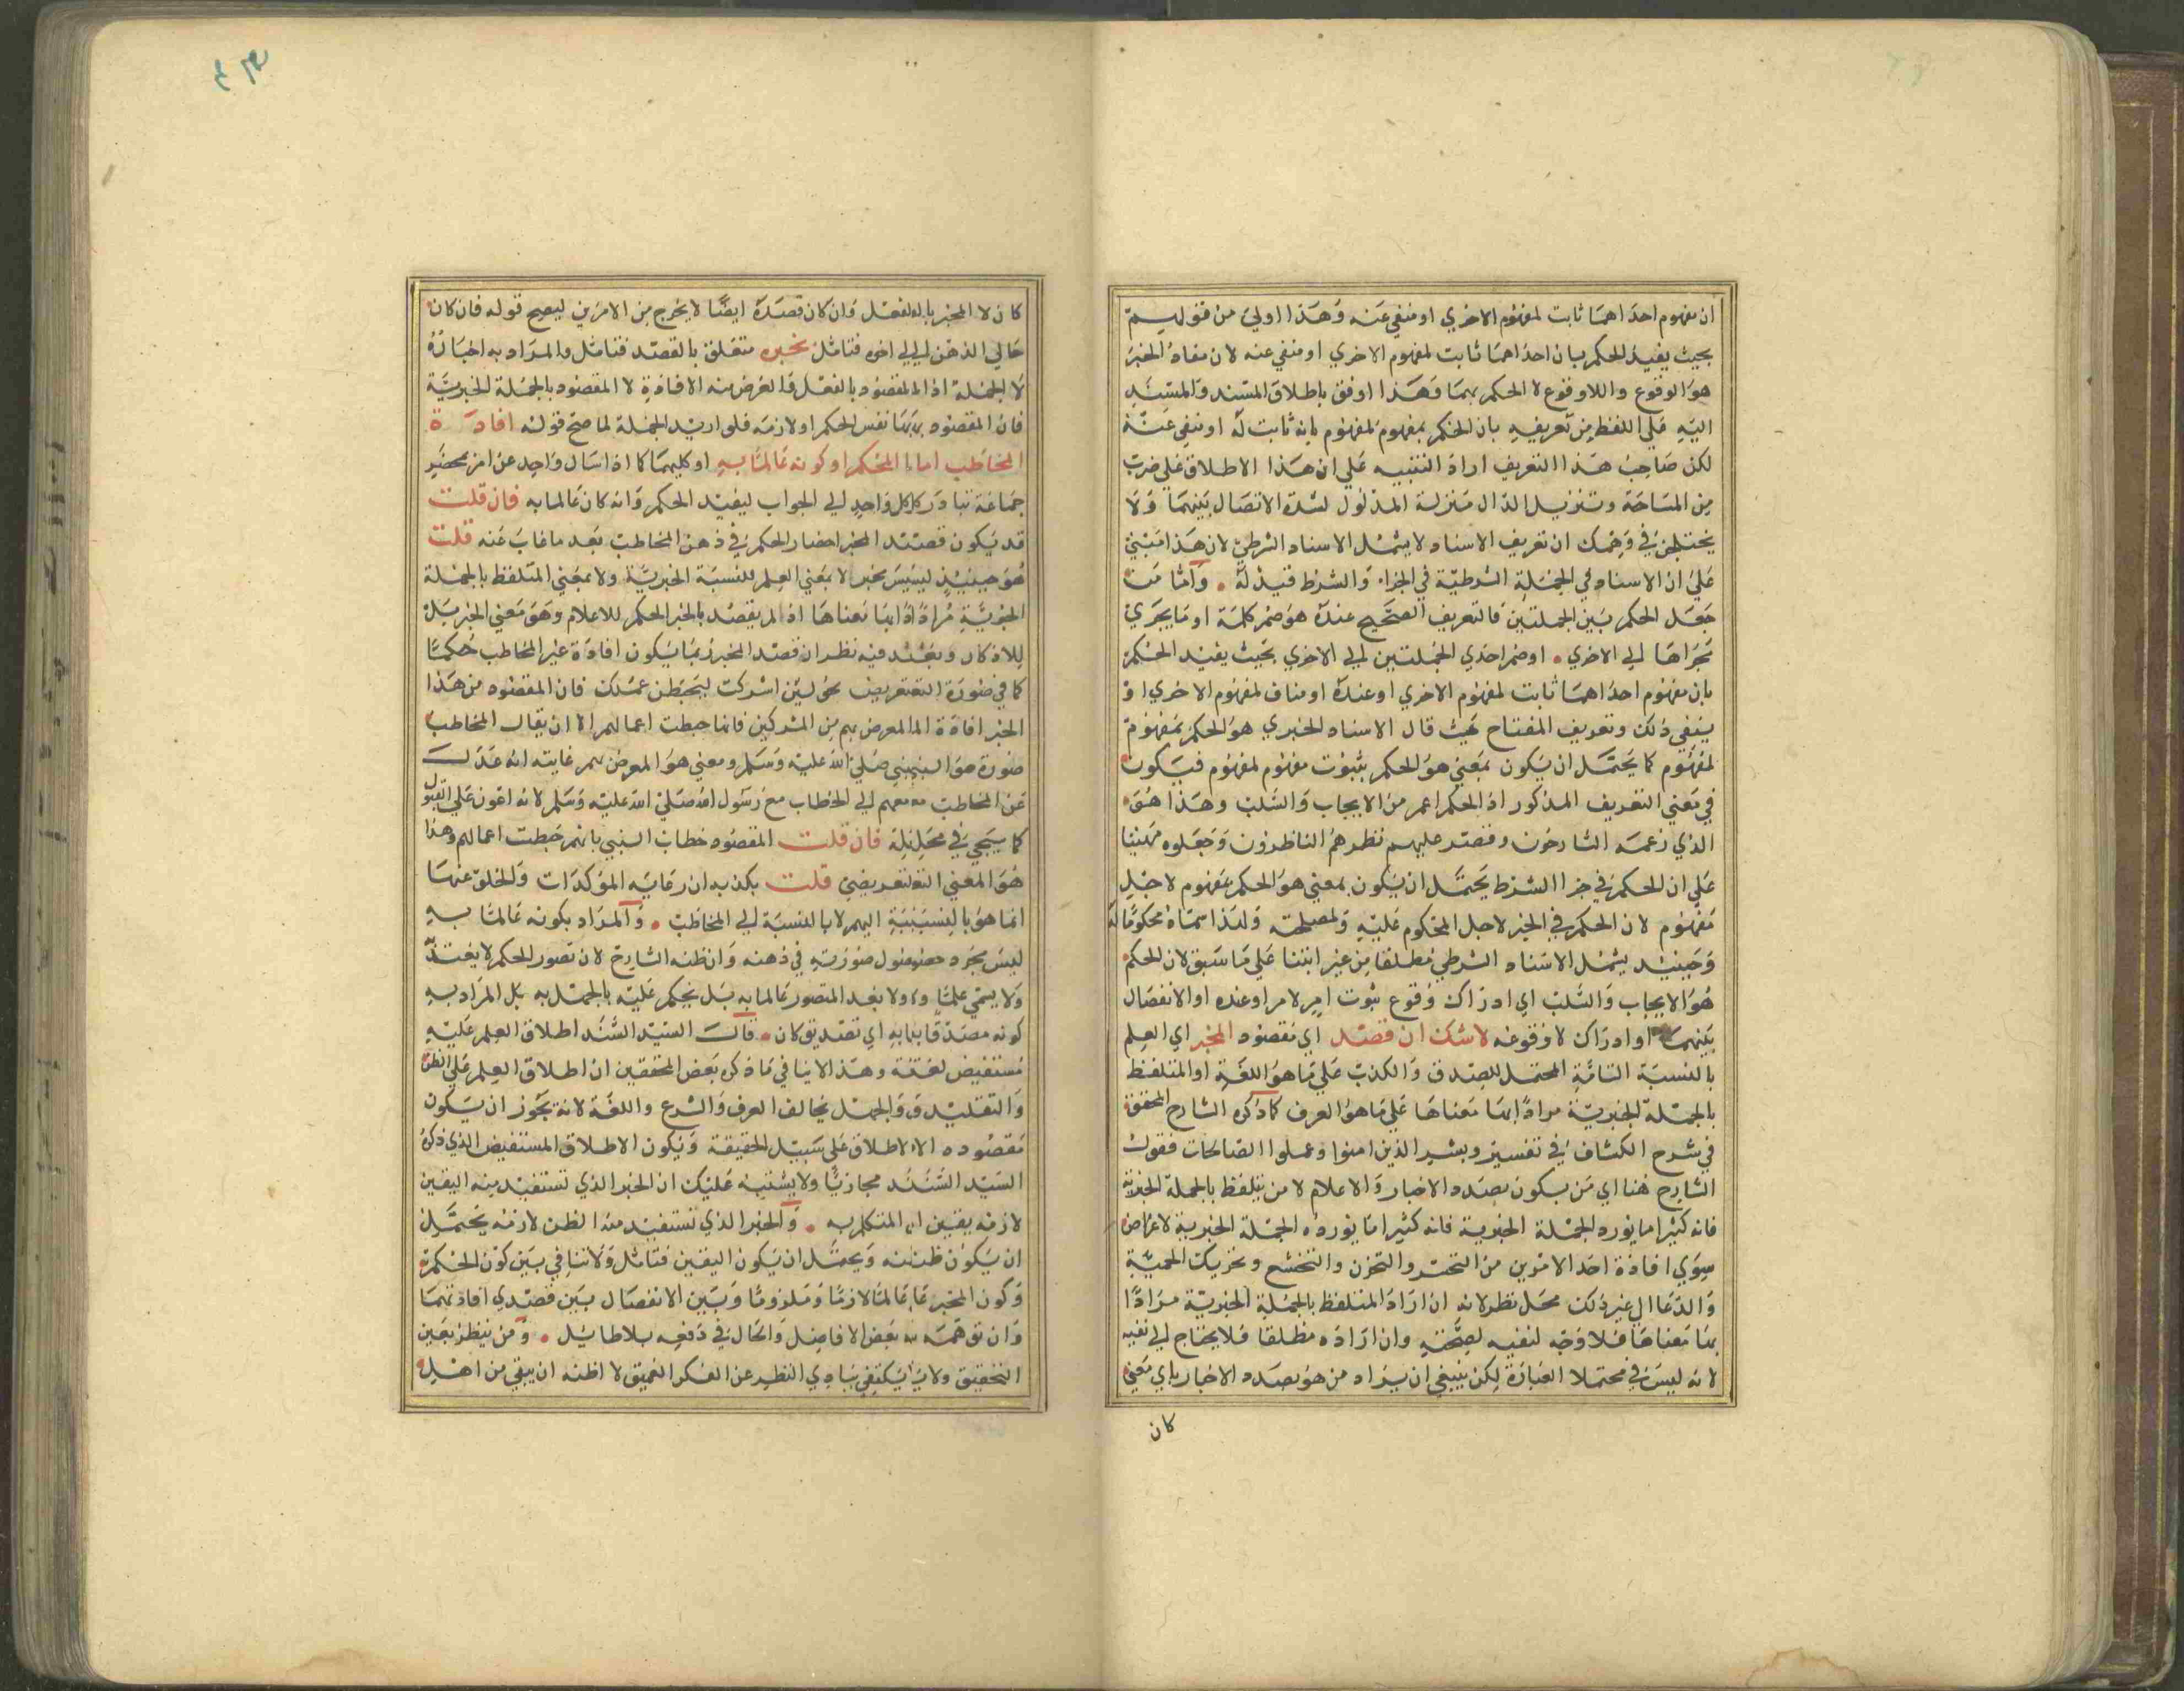 ان مفهوم احداهما ثابت لمفهوم الاخري او منفي عنه وهذا اولي من قولهم
بحيث يفيد الحكم بان احداهما ثابت لمفهوم الاخري او منفي عنه لان مفاد الخبر
هو الوقوع واللاوقوع لا الحكم بهما وهذا اوفق باطلاق المسند والمسند
اليه علي اللفظ من تعريفه بان الحكم بمفهوم لمفهوم بانه ثابت له او منفي عنه
لكن صاحب هذا التعريف اراد التنبيه علي ان هذا الاطلاق علي ضرب
من المسامحة وتنزيل الدال منزلة المدلول لشدة الاتصال بينهما ولا
يختلجن في وهمك ان تعريف الاسناد لا يشمل الاسناد الشرطي لان هذا مبني
علي ان الاسناد في الجملة الشرطية في الجزاء والشرط قيد له واما من
جعل الحكم بين الجملتين فالتعريف الصحيح عنده هو ضم كلمة او ما يجري
مجراها الي الاخري او ضم احدي الجملتين الي الاخري بحيث يفيد الحكم
بان مفهوم احداهما ثابت لمفهوم الاخري او عنده او مناف لمفهوم الاخري او
ينفي ذلك وتعريف المفتاح حيث قال الاسناد الخبري هو الحكم بمفهوم
لمفهوم كما يحتمل ان يكون بمعني هو الحكم بثبوت مفهوم لمفهوم فيكون
في معني التعريف المذكور اذ الحكم اعم من الايجاب والسلب وهذا هو
الذي زعمه الشارحون وقصر عليهم نظرهم الناظرون وجعلوه مبنيا
علي ان الحكم في جزا الشرط يحتمل ان يكون بمعني هو الحكم بمفهوم لاجل
مفهوم لان الحكم في الخبر لاجل المحكوم عليه ولمصلحته ولذا سماه محكوما له
وحينئذ يشمل الاسناد الشرطي مطلقا من غير ابتنا علي ما سبق لان الحكم
هو الايجاب والسلب اي ادراك وقوع ثبوت امر لامر او عنده او الانفصال
بينهما او ادراك لا وقوعه لا شك ان قصد اي مقصود المخبر اي العلم
بالنسبة التامة المحتمل للصدق والكذب علي ما هو اللغة او المتلفظ
بالجملة الخبرية مرادا بها معناها علي ما هو العرف كما ذكره الشارح المحقق
في شرح الكشاف في تفسير وبشر الذين امنوا وعملوا الصالحات فقول
الشارح هنا اي من يكون بصدد الاخبار والاعلام لا من يتلفظ بالجملة الخبرية
فانه كثيرا ما يورد الجملة الخبرية فانه كثيرا ما يورد الجملة الخبرية لاغراض
سوي افادة احد الامرين من التحسر والتحزن والتخشع وتحريك الحمية
والدعا الي غير ذلك محل نظر لانه ان اراد المتلفظ بالجملة الخبرية مرادا
بها معناها فلا وجه لنفيه لصحته وان اراده مطلقا فلا يحتاج الي نفيه
لانه ليس في محتملا العبارة لكن ينبغي ان يزاد من هو بصدد الاخبار باي معني
كان
كان لا المخبر بالفعل وان كان قصده ايضا لا يخرج من الامرين ليصح قوله فان كان
خالي الذهن الي اخره فتامل بخبره متعلق بالقصد فتامل والمراد به اخباره
لا الجملة اذ المقصود بالفعل والغرض منه الافادة لا المقصود بالجملة الخبرية
فان المقصود بها نفس الحكم او لازمه فلو اريد الجملة لما صح قوله افادة
المخاطب اما الحكم او كونه عالما به او كليهما كما اذا سال واحد عن امر بمحضر
جماعة تبادر كل واحد الي الجواب ليفيد الحكم وانه كان عالما به فان قلت
قد يكون قصد المخبر احضار الحكم في ذهن المخاطب بعد ما غاب عنه قلت
هو حينئذ ليس بخبر لا بمعني العلم للنسبة الخبرية ولا بمعني المتلفظ بالجملة
الخبرية مرادا بها معناها اذ لم يقصد بالخبر الحكم للاعلام وهو معني الخبر بل
للاذكار وبعد فيه نظر ان قصد المخبر ربما يكون افادة غير المخاطب حكما
كما في صورة التعريض نحو لئن اشركت ليحبطن عملك فان المقصود من هذا
الخبر افادة المعرض بهم من المشركين فانما حبطت اعمالهم الا ان يقال المخاطب
صورة هو النبي صلي الله عليه وسلم ومعني هو المعرض بهم غايته انه عدل
عن المخاطب معهم الي الخطاب مع رسول الله صلي الله عليه وسلم لانه اعون علي القبول
كما سيجي في محله فان قلت المقصود خطاب النبي بانهم حبطت اعمالهم وهذا
هو المعني التعريضي قلت يكذبه ان رعاية المؤكدات والخلو عنها
انما هو بالنسبة اليهم لا بالنسبة الي المخاطب والمراد بكونه عالما به
ليس مجرد حصول صورته في ذهنه وان ظنه الشارح لان تصور الحكم لا يعتد
ولا يسمي علما ولا يعد المتصور عالما به بل يحكم عليه بالجهل به بل المراد به
كونه مصدقا به اي تصديق كان قال السيد السند اطلاق العلم عليه
مستفيض لغة وهذا لا ينافي ما ذكره بعض المحققين ان اطلاق العلم علي الظن
والتقليد والجهل يخالف العرف والشرع واللغة لانه يجوز ان يكون
مقصوده الاطلاق علي سبيل الحقيقة ويكون الاطلاق المستفيض الذي ذكره
السيد السند مجازيا ولا يشتبه عليك ان الخبر الذي تستفيد منه اليقين
لازمه يقين المتكلم به والخبر الذي تستفيد منه الظن لازمه يحتمل
ان يكون ظنه ويحتمل ان يكون اليقين فتامل ولا تنافي بين كون الحكم
وكون المخبر عالما لازما وملزوما وبين الانفصال بين قصدي افادتهما
وان توهمه بعض الافاضل واطال في دفعه بلا طائل ومن ينظر بعين
التحقيق ولا يكتفي ببادي النظر عن الفكر العميق لا اظنه ان يبقي من اهل